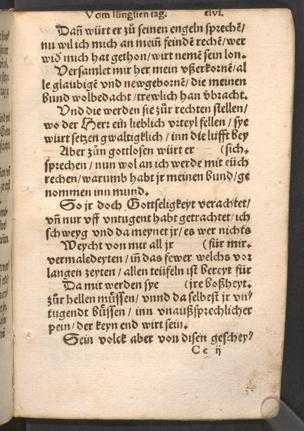 Vom jüngsten tag. clvi.
Dañ würt er zů seinen engeln sprechẽ/
nu wil ich mich an meiñ feindẽ rechẽ/ wer
wid mich hat gethon/ würt nemẽ sein lon.
Versamlet mir her mein vßerkornẽ/ al
le glaubigẽ vnd newgebornẽ/ die meinen
bund wolbedacht/ trewlich han vbracht.
Vnd die werden sie zůr rechten stellen/
wo der Herr ein lieblich vrteyl fellen/ sye
würt setzen gwaltigklich/ inn die lufft bey
Aber zůn gottlosen würt er (sich.
sprechen/ nun wol an ich werde mit eüch
rechen/ warumb habt jr meinen bund/ ge
nommen inn mund.
So jr doch Gottseligkeyt verachtet/
vñ nur vff vntugent habt getrachtet/ ich
schweyg vnd da meynet jr/ es wer nichts
Weycht von mir all jr (für mir.
vermaledeyten/ iñ das fewer welchs vor
langen zeyten/ allen teüfeln ist bereyt für
Da mit werden sye (jre boßheyt.
zůr hellen müssen/ vnnd da selbest jr vn/
tugendt büssen/ inn vnaußsprechlicher
pein/ der keyn end wirt sein.
Sein volck aber von disen geschey/
Cc ij